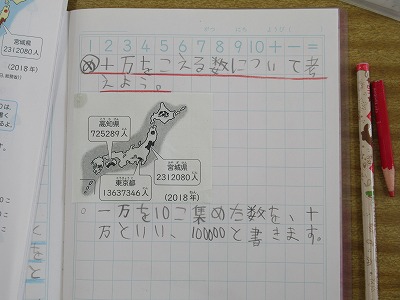 1 2 3 4 5 6 7 8 9 10 + − =
め 十万をこえる数について考
えよう。
高知県
725289人
宮城県
2312080人
東京都
13637346人
(2018年)
一万を10こ集めた数を、十
万といい、100000と書きます。
宮城県
2312080人
(2018年)